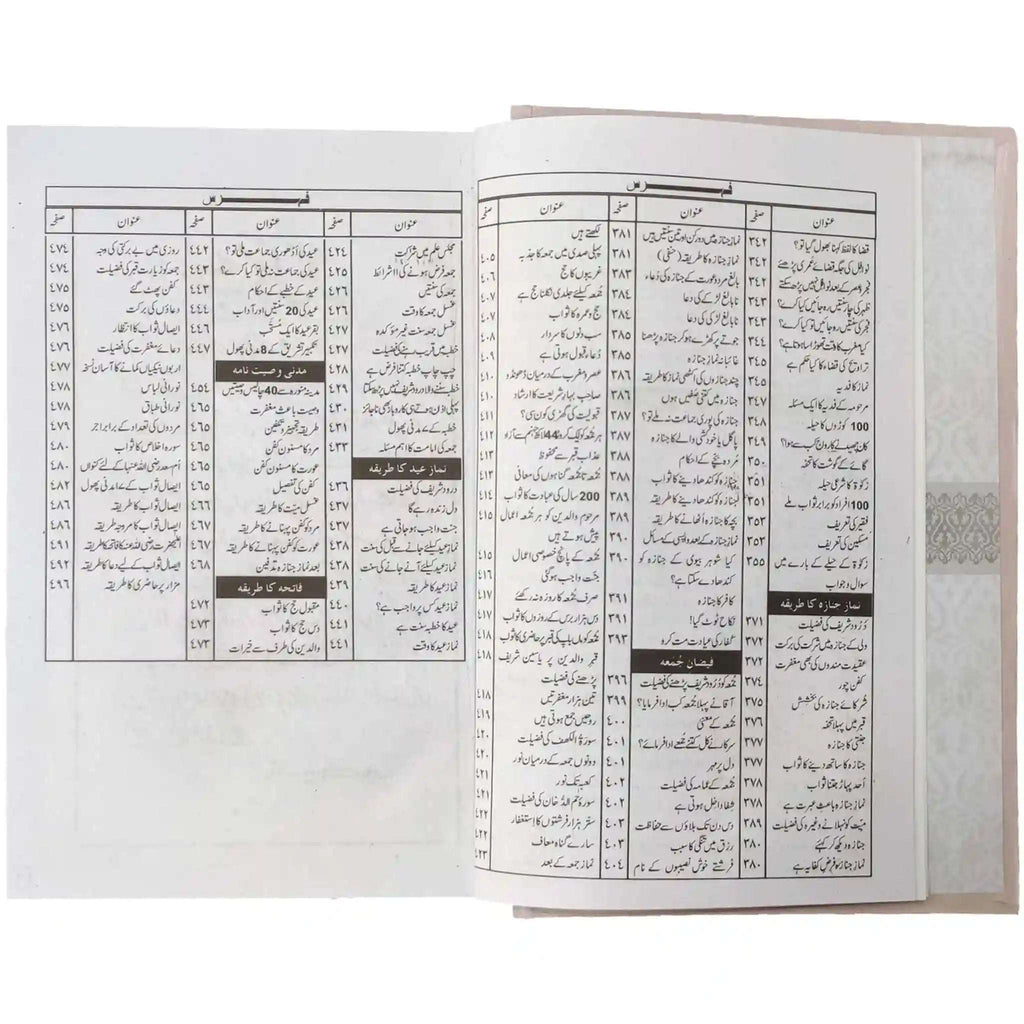 فہرس
عنوان صفحہ عنوان صفحہ عنوان صفحہ
قضا کا لفظ کہنا بھول گیا تو؟ ۳۴۲
نوافل کی جگہ قضائے عمری پڑھئے ۳۴۲
فجر و عصر کے بعد نوافل نہیں پڑھ سکتے ۳۴۲
ظہر کی چار سنتیں رہ جائیں تو کیا کرے؟ ۳۴۳
فجر کی سنتیں رہ جائیں تو کیا کرے؟ ۳۴۳
کیا مغرب کا وقت تھوڑا سا ہوتا ہے؟ ۳۴۴
تراویح کی قضا کا کیا حکم ہے ۳۴۵
نماز کا فدیہ ۳۴۵
مرحومہ کے فدیہ کا ایک مسئلہ ۳۴۶
100 کوڑوں کا حیلہ ۳۴۸
کان چھیدنے کا رواج کب سے ہوا؟ ۳۴۹
گائے کے گوشت کا تحفہ ۳۵۰
زکوٰۃ کا شرعی حیلہ ۳۵۱
100 افراد کو برابر برابر ثواب ملے ۳۵۱
فقیر کی تعریف ۳۵۳
مسکین کی تعریف ۳۵۳
زکوٰۃ کے حیلے کے بارے میں ۳۵۵
سوال و جواب
نماز جنازہ کا طریقہ
دُرُود شریف کی فضیلت ۳۷۱
ولی کے جنازہ میں شرکت کی برکت ۳۷۱
عقیدت مندوں کی بھی مغفرت ۳۷۲
کفن چور ۳۷۴
شرکائے جنازہ کی بخشش ۳۷۵
قبر میں پہلا تحفہ ۳۷۶
جنتی کا جنازہ ۳۷۷
جنازہ کا ساتھ دینے کا ثواب ۳۷۷
اُحد پہاڑ جتنا ثواب ۳۷۸
نماز جنازہ باعثِ عبرت ہے ۳۷۸
میت کو نہلانے وغیرہ کی فضیلت ۳۸۹
جنازہ دیکھ کر کہئے ۳۸۰
نماز جنازہ فرض کفایہ ہے ۳۸۰
نماز جنازہ میں دو رکن اور تین سنتیں ہیں ۳۸۱
نماز جنازہ کا طریقہ (حنفی) ۳۸۱
بالغ مرد و عورت کے جنازہ کی دُعاء ۳۸۳
نابالغ لڑکے کی دعا ۳۸۴
نابالغ لڑکی کی دعا ۳۸۴
جوتے پر کھڑے ہو کر جنازہ پڑھنا ۳۸۵
غائبانہ نماز جنازہ ۳۸۵
چند جنازوں کی اکٹھی نماز کا طریقہ ۳۸۶
جنازہ میں کتنی صفیں ہوں ۳۸۶
جنازہ کی پوری جماعت نہ ملے تو؟ ۳۸۷
پاگل یا خودکشی والے کا جنازہ ۳۸۷
مُردہ بچے کے احکام ۳۸۸
جنازہ کو کندھا دینے کا ثواب ۳۸۸
جنازہ کو کندھا دینے کا طریقہ ۳۸۹
بچہ کا جنازہ اُٹھانے کا طریقہ ۳۸۹
نماز جنازہ کے بعد واپسی کے مسائل ۳۹۰
کیا شوہر بیوی کے جنازہ کو ۳۹۰
کندھا دے سکتا ہے؟
کافر کا جنازہ ۳۹۱
نکاح ٹوٹ گیا! ۳۹۱
کفار کی عیادت مت کرو ۳۹۳
فیضانِ جُمُعہ
جُمُعہ کو دُرُود شریف پڑھنے کی فضیلت ۳۹۶
آقا نے پہلا جُمُعہ کب ادا فرمایا؟ ۳۹۹
جُمُعہ کے معنی ۴۰۰
سرکار نے کل کتنے جُمُعے ادا فرمائے؟ ۴۰۱
دل پر مہر ۴۰۱
جُمُعہ کے عمامہ کی فضیلت ۴۰۲
شفا داخل ہوتی ہے ۴۰۲
دس دن تک بلاؤں سے حفاظت ۴۰۳
رزق میں تنگی کا سبب ۴۰۳
فرشتے خوش نصیبوں کے نام ۴۰۴
لکھتے ہیں
پہلی صدی میں جمعہ کا جذبہ ۴۰۵
غریبوں کا حج ۴۰۶
جُمُعہ کیلئے جلدی نکلنا حج ہے ۴۰۷
حج و عمرہ کا ثواب ۴۰۷
سب دنوں کا سردار ۴۰۸
دُعا قبول ہوتی ہے ۴۰۹
عصر و مغرب کے درمیان ڈھونڈو ۴۱۰
صاحبِ بہارِ شریعت کا ارشاد ۴۱۰
قبولیت کی گھڑی کون سی؟ ۴۱۱
ہر جُمُعہ کو ایک کروڑ 44 لاکھ جہنم سے آزاد ۴۱۲
عذابِ قبر سے محفوظ ۴۱۳
جُمُعہ تا جُمُعہ گناہوں کی معافی ۴۱۳
200 سال کی عبادت کا ثواب ۴۱۴
مرحوم والدین کو ہر جُمُعہ اعمال ۴۱۵
پیش ہوتے ہیں
جُمُعہ کے پانچ خصوصی اعمال ۴۱۵
جنت واجب ہو گئی ۴۱۶
صرف جُمُعہ کا روزہ نہ رکھئے ۴۱۷
دس ہزار برس کے روزوں کا ثواب ۴۱۷
جُمُعہ کو ماں باپ کی قبر پر حاضری کا ثواب ۴۱۸
قبرِ والدین پر یاسین شریف ۴۱۸
پڑھنے کی فضیلت
تین ہزار مغفرتیں ۴۱۸
روحیں جمع ہوتی ہیں ۴۱۹
سورۃ الکھف کی فضیلت ۴۲۰
دونوں جمعہ کے درمیان نور ۴۲۰
کعبہ تک نور ۴۲۱
سورۃ حم الدُّخان کی فضیلت ۴۲۱
ستر ہزار فرشتوں کا استغفار ۴۲۲
سارے گناہ معاف ۴۲۲
نماز جمعہ کے بعد ۴۲۳
فہرس
عنوان صفحہ عنوان صفحہ عنوان صفحہ
مجلس علم میں شرکت ۴۲۴
جمعہ فرض ہونے کی ۱۱ شرائط ۴۲۵
جمعہ کی سنتیں ۴۲۶
غسلِ جمعہ کا وقت ۴۲۶
غسلِ جمعہ سنت غیر مؤکدہ ۴۲۷
خطبہ میں قریب رہنے کی فضیلت ۴۲۷
چپ چاپ خطبہ سننا فرض ہے ۴۲۸
خطبہ سننے والا دُرود شریف نہیں پڑھ سکتا ۴۲۹
پہلی اذان ہوتے ہی کاروبار بھی ناجائز ۴۳۰
خطبے کے ۷ مدنی پھول ۴۳۱
جمعہ کی امامت کا اہم مسئلہ ۴۳۳
نماز عید کا طریقہ
دُرود شریف کی فضیلت ۴۳۶
دل زندہ رہے گا ۴۳۷
جنت واجب ہو جاتی ہے ۴۳۷
نمازِ عید کیلئے جانے سے قبل کی سنت ۴۳۸
نمازِ عید کیلئے آنے جانے کی سنت ۴۳۸
نماز عید کا طریقہ ۴۳۹
نماز عید کس پر واجب ہے؟ ۴۴۰
عید کا خطبہ سنت ہے ۴۴۱
نماز عید کا وقت ۴۴۱
عید کی اُدھوری جماعت ملی تو؟ ۴۴۲
عید کی جماعت نہ ملی تو کیا کرے؟ ۴۴۳
عید کے خطبے کے احکام ۴۴۳
عید کی 20 سنتیں اور آداب ۴۴۴
بقر عید کا ایک مُستَحَب ۴۴۶
تکبیر تشریق کے 8 مدنی پھول ۴۴۷
مدنی وصیت نامہ
مدینہ منورہ سے 40 چالیس وصیتیں ۴۵۴
وصیت باعثِ مغفرت ۴۶۵
طریقہ تجہیز و تکفین ۴۶۵
مرد کا مسنون کفن ۴۶۵
عورت کا مسنون کفن ۴۶۵
کفن کی تفصیل ۴۶۵
غسل میت کا طریقہ ۴۶۶
مرد کو کفن پہنانے کا طریقہ ۴۶۷
عورت کو کفن پہنانے کا طریقہ ۴۶۷
بعد نماز جنازہ تدفین ۴۶۸
فاتحہ کا طریقہ
مقبول حج کا ثواب ۴۷۲
دس حج کا ثواب ۴۷۳
والدین کی طرف سے خیرات ۴۷۳
روزی میں بے برکتی کی وجہ ۴۷۴
جمعہ کو زیارتِ قبر کی فضیلت ۴۷۴
کفن پھٹ گئے ۴۷۵
دعاؤں کی برکت ۴۷۵
ایصالِ ثواب کا انتظار ۴۷۶
دعائے مغفرت کی فضیلت ۴۷۶
اربوں نیکیاں کمانے کا آسان نسخہ ۴۷۷
نورانی لباس ۴۷۸
نورانی طباق ۴۷۸
مُردوں کی تعداد کے برابر اجر ۴۷۹
سورہ اخلاص کا ثواب ۴۸۰
اُم سعد رضی اللہ عنہا کے لئے کنواں ۴۸۰
ایصالِ ثواب کے ۱۷ مدنی پھول ۴۸۲
ایصالِ ثواب کا طریقہ ۴۸۶
ایصالِ ثواب کا مروجہ طریقہ ۴۸۶
اعلیٰحضرت رضی اللہ عنہ کا فاتحہ کا طریقہ ۴۹۱
ایصالِ ثواب کے لیے دعا کا طریقہ ۴۹۲
مزار پر حاضری کا طریقہ ۴۹۶